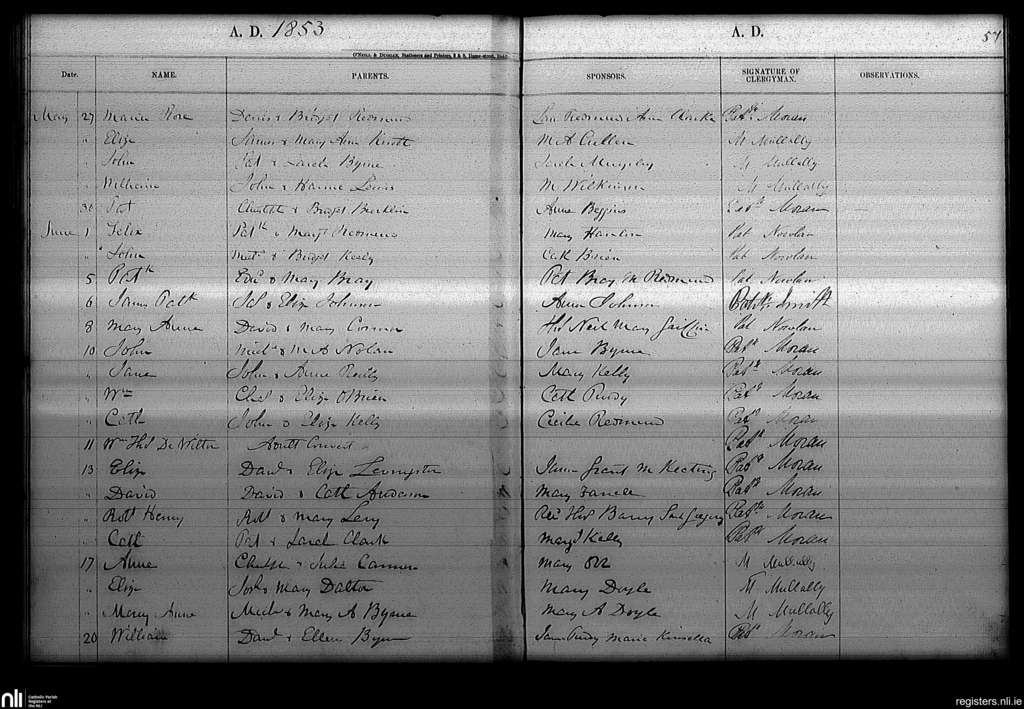 A. D. 1853 A. D. 57
O'Neill & Duggan, Stationers and Printers
Date. NAME. PARENTS. SPONSORS. SIGNATURE OF CLERGYMAN. OBSERVATIONS.
May 27 Maria Rose Denis & Bridget Redmond Redmond Ann Clarke Patk Moran
" Eliza James & Mary Ann M A Cullen M Mullally
" John Pat & Sarah Byrne Sarah M Mullally
" William John & Lewis M Wilkinson M Mullally
30 Pat & Bridget Anne Beggins Patk Moran
June 1 Felix Patk & Margt Redmond Mary Hanlon Pat Nowlan
" John Michl & Bridget Cath Brien Pat Nowlan
5 Patk & Mary Bray Pat Bray M Redmond Pat Nowlan
6 James Patk & Eliza Johnson Anne Johnson Patk Smith
8 Mary Anne David & Mary Connor Neil Mary Pat Nowlan
10 John Michl & M A Nolan Jane Byrne Patk Moran
" Jane John & Anne Reilly Mary Kelly Patk Moran
" Wm Chas & Eliza O'Brien Cath Purdy Patk Moran
" Cath John & Eliza Kelly Cecilia Redmond Patk Moran
11 Wm Thos De Witter Adult Convert Patk Moran
13 Eliza Danl & Eliza Levingston James Grant M Keating Patk Moran
" David David & Cath Anderson Mary Farrell Patk Moran
" Robt Henry Robt & Mary Levy Revd Thos Barry Patk Moran
" Cath Pat & Sarah Clark Margt Kelly Patk Moran
17 Anne & Julia Mary Orr M Mullally
" Eliza & Mary Dalton Mary Doyle M Mullally
" Mary Anne Michl & Mary A Byrne Mary A Doyle M Mullally
20 William Danl & Ellen Byrne James Purdy Maria Kinsella Patk Moran
nli Catholic Parish Registers at the NLI
registers.nli.ie